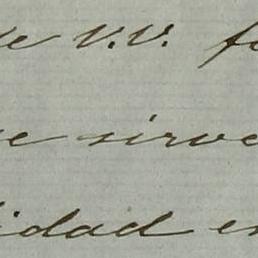 de V.V. fa
se sirva
idad en